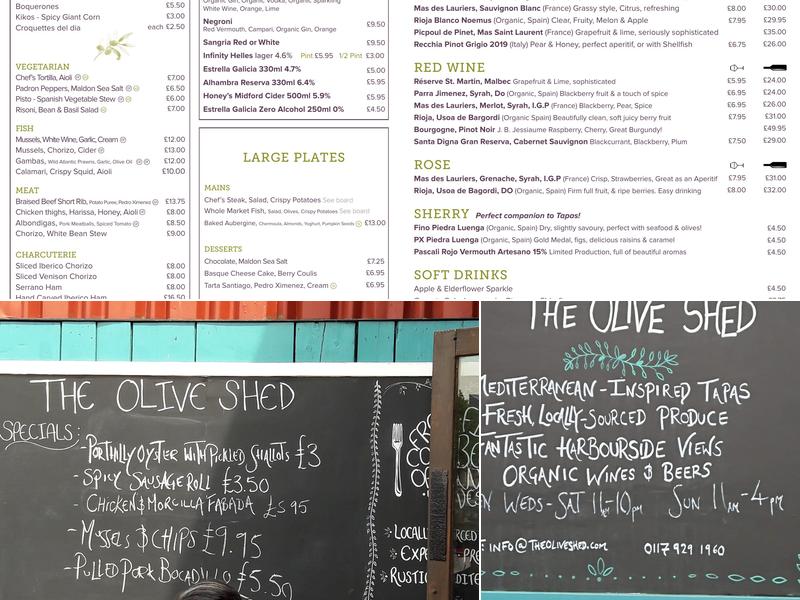 Boquerones £5.50
Kikos - Spicy Giant Corn £3.00
Croquettes del dia each £2.50
VEGETARIAN
Chef's Tortilla, Aioli £7.00
Padron Peppers, Maldon Sea Salt £6.50
Pisto - Spanish Vegetable Stew £6.00
Risoni, Bean & Basil Salad £7.00
FISH
Mussels, White Wine, Garlic, Cream £12.00
Mussels, Chorizo, Cider £13.00
Gambas, Wild Atlantic Prawns, Garlic, Olive Oil £12.00
Calamari, Crispy Squid, Aioli £10.00
MEAT
Braised Beef Short Rib, Potato Puree, Pedro Ximenez £13.75
Chicken thighs, Harissa, Honey, Aioli £8.00
Albondigas, Pork Meatballs, Spiced Tomato £8.50
Chorizo, White Bean Stew £9.00
CHARCUTERIE
Sliced Iberico Chorizo £8.00
Sliced Venison Chorizo £8.00
Serrano Ham £8.00
Hand Carved Iberico Ham £16.50
White Wine, Orange, Lime
Negroni £9.50
Red Vermouth, Campari, Organic Gin, Orange
Sangria Red or White £9.50
Infinity Helles lager 4.6% Pint £5.95 1/2 Pint £3.00
Estrella Galicia 330ml 4.7% £5.00
Alhambra Reserva 330ml 6.4% £5.95
Honey's Midford Cider 500ml 5.9% £5.95
Estrella Galicia Zero Alcohol 250ml 0% £4.50
LARGE PLATES
MAINS
Chef's Steak, Salad, Crispy Potatoes See board
Whole Market Fish, Salad, Olives, Crispy Potatoes See board
Baked Aubergine, Chermoula, Almonds, Yoghurt, Pumpkin Seeds £13.00
DESSERTS
Chocolate, Maldon Sea Salt £7.25
Basque Cheese Cake, Berry Coulis £6.95
Tarta Santiago, Pedro Ximenez, Cream £6.95
Mas des Lauriers, Sauvignon Blanc (France) Grassy style, Citrus, refreshing £8.00 £30.00
Rioja Blanco Noemus (Organic, Spain) Clear, Fruity, Melon & Apple £7.95 £29.95
Picpoul de Pinet, Mas Saint Laurent (France) Grapefruit & lime, seriously sophisticated £35.00
Recchia Pinot Grigio 2019 (Italy) Pear & Honey, perfect aperitif, or with Shellfish £6.75 £26.00
RED WINE
Réserve St. Martin, Malbec Grapefruit & Lime, sophisticated £5.95 £24.00
Parra Jimenez, Syrah, Do (Organic, Spain) Blackberry fruit & a touch of spice £6.95 £26.00
Mas des Lauriers, Merlot, Syrah, I.G.P (France) Blackberry, Pear, Spice £6.95 £26.00
Rioja, Usoa de Bargordi (Organic, Spain) Beautifully clean, soft juicy berry fruit £7.95 £31.00
Bourgogne, Pinot Noir J. B. Jessiaume Raspberry, Cherry, Great Burgundy! £49.95
Santa Digna Gran Reserva, Cabernet Sauvignon Blackcurrant, Blackberry, Plum £7.50 £29.00
ROSE
Mas des Lauriers, Grenache, Syrah, I.G.P (France) Crisp, Strawberries, Great as an Aperitif £7.95 £31.00
Rioja, Usoa de Bagordi, DO (Organic, Spain) Firm full fruit, & ripe berries. Easy drinking £8.00 £32.00
SHERRY Perfect companion to Tapas!
Fino Piedra Luenga (Organic, Spain) Dry, slightly savoury, perfect with seafood & olives! £4.50
PX Piedra Luenga (Organic, Spain) Gold Medal, figs, delicious raisins & caramel £4.50
Pascali Rojo Vermouth Artesano 15% Limited Production, full of beautiful aromas £4.50
SOFT DRINKS
Apple & Elderflower Sparkle £4.50
THE OLIVE SHED
SPECIALS:
- PORTHILLY OYSTER WITH PICKLED SHALLOTS £3
- SPICY SAUSAGE ROLL £3.50
- CHICKEN & MORCILLA FABADA £5.95
- MUSSELS & CHIPS £9.95
- PULLED PORK BOCADILLO £5.50
THE OLIVE SHED
MEDITERRANEAN-INSPIRED TAPAS
FRESH, LOCALLY-SOURCED PRODUCE
FANTASTIC HARBOURSIDE VIEWS
ORGANIC WINES & BEERS
N WEDS-SAT 11AM-10PM SUN 11AM-4PM
INFO@THEOLIVESHED.COM 0117 929 1960